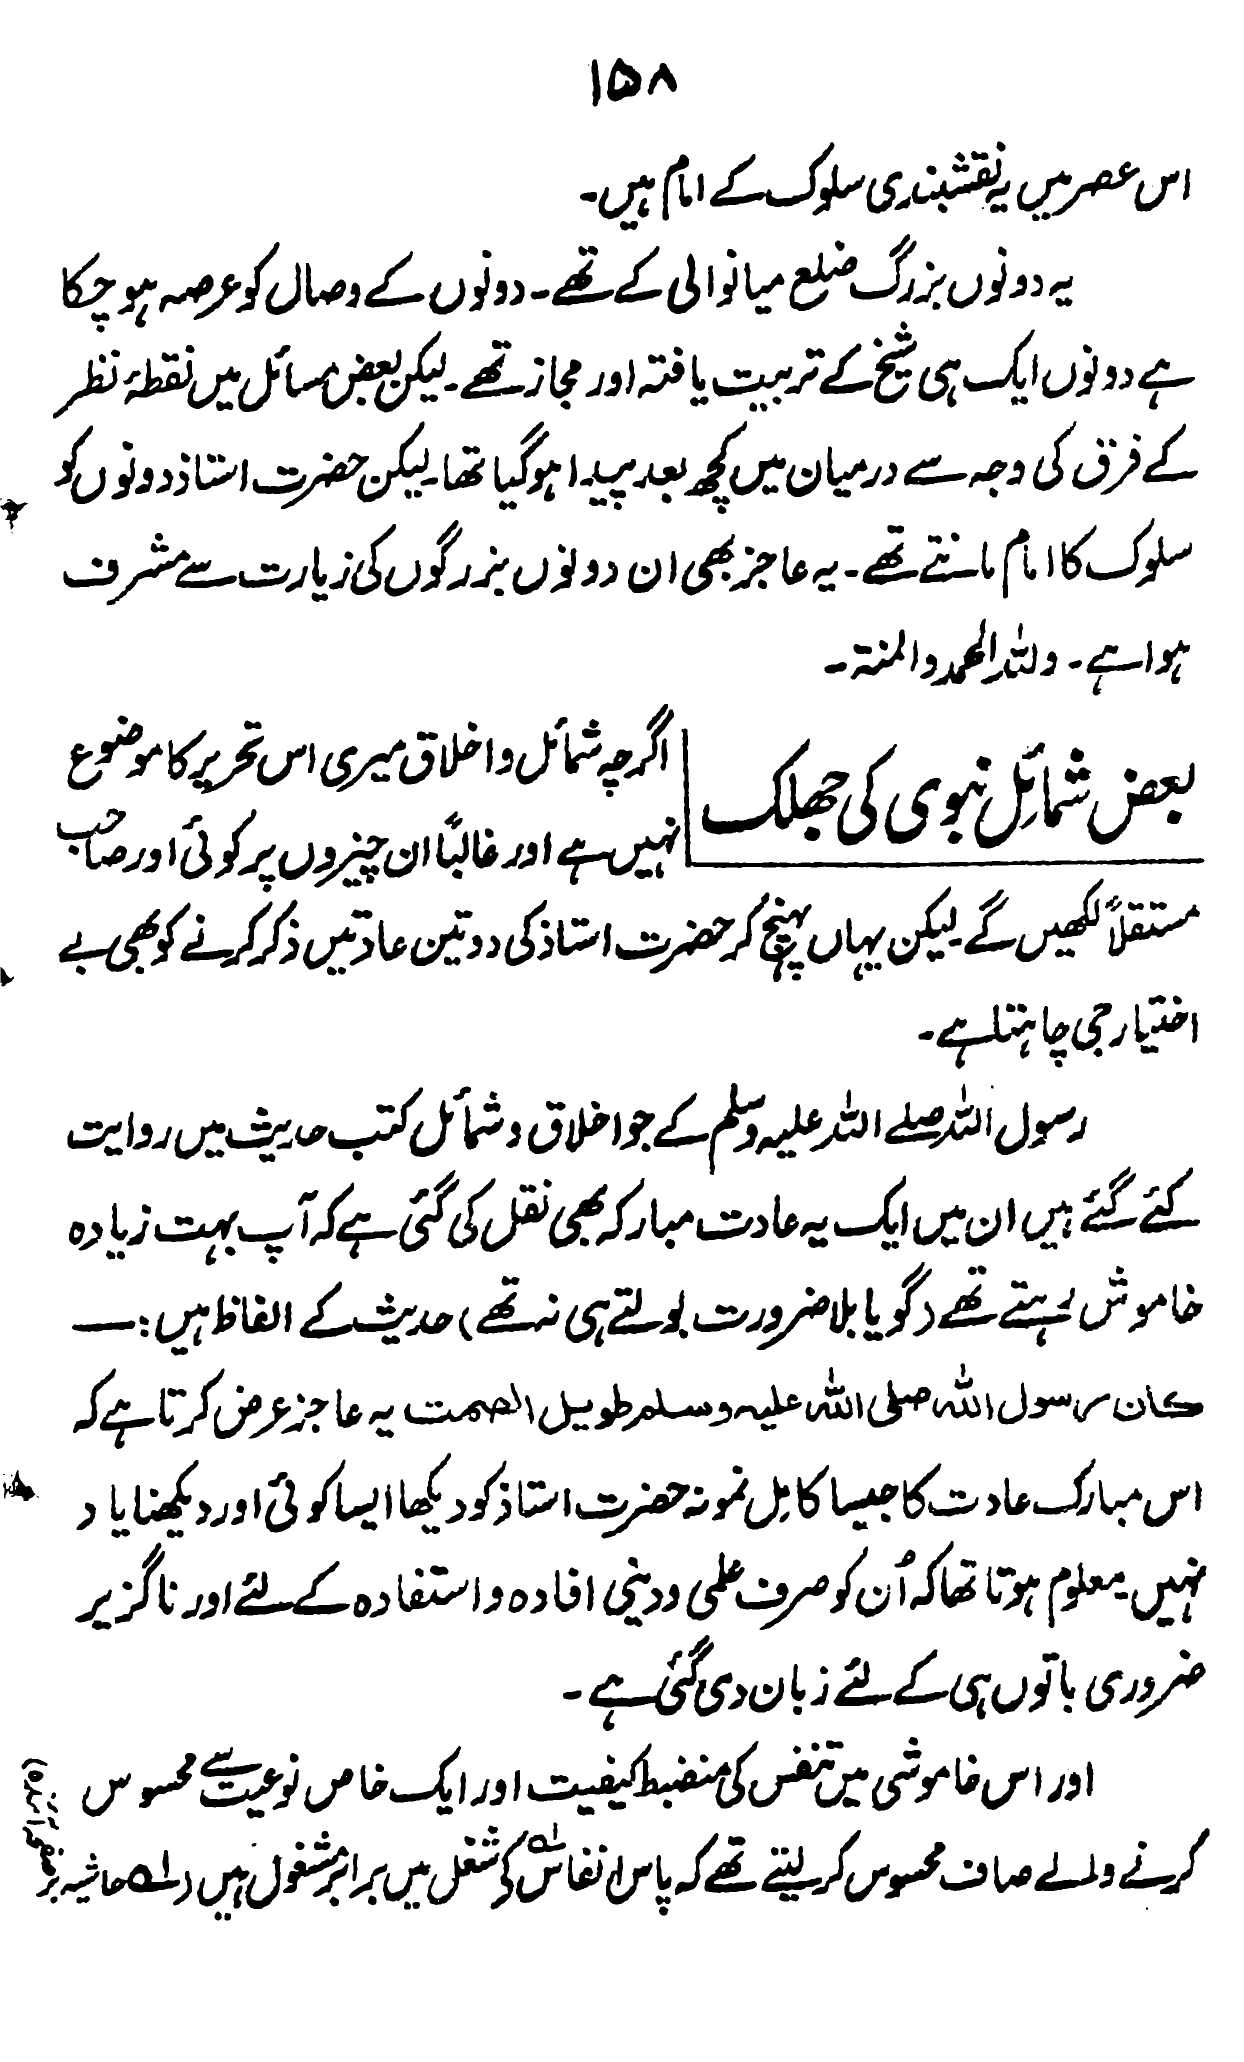 ۱۵۸
اس عصر میں یہ نقشبندی سلوک کے امام ہیں۔
یہ دونوں بزرگ ضلع میانوالی کے تھے۔ دونوں کے وصال کو عرصہ ہو چکا
ہے دونوں ایک ہی شیخ کے تربیت یافتہ اور مجاز تھے۔ لیکن بعض مسائل میں نقطۂ نظر
کے فرق کی وجہ سے درمیان میں کچھ بعد پیدا ہوگیا تھا۔ لیکن حضرت استاذ دونوں کو
سلوک کا امام مانتے تھے۔ یہ عاجز بھی ان دونوں بزرگوں کی زیارت سے مشرف
ہوا ہے۔ وللہ الحمد والمنۃ۔
بعض شمائلِ نبوی کی جھلک
اگرچہ شمائل و اخلاق میری اس تحریر کا موضوع
نہیں ہے اور غالباً ان چیزوں پر کوئی اور صاحب
مستقلاً لکھیں گے۔ لیکن یہاں پہنچ کر حضرت استاذ کی دو تین عادتیں ذکر کرنے کو بھی بے
اختیار جی چاہتا ہے۔
رسول اللہ صلے اللہ علیہ وسلم کے جو اخلاق و شمائل کتب حدیث میں روایت
کئے گئے ہیں ان میں ایک یہ عادت مبارکہ بھی نقل کی گئی ہے کہ آپ بہت زیادہ
خاموش رہتے تھے (گویا بلا ضرورت بولتے ہی نہ تھے) حدیث کے الفاظ ہیں:—
کان رسول اللہ صلی اللہ علیہ وسلم طویل الصمت یہ عاجز عرض کرتا ہے کہ
اس مبارک عادت کا جیسا کامِل نمونہ حضرت استاذ کو دیکھا ایسا کوئی اور دیکھنا یاد
نہیں۔ معلوم ہوتا تھا کہ اُن کو صرف علمی و دینی افادہ و استفادہ کے لئے اور ناگزیر
ضروری باتوں ہی کے لئے زبان دی گئی ہے۔
اور اس خاموشی میں تنفس کی منضبط کیفیت اور ایک خاص نوعیت سے محسوس
کرنے والے صاف محسوس کر لیتے تھے کہ پاس انفاس لہ کے شغل میں برابر مشغول ہیں (لہ حاشیہ بر
صفحہ آئندہ)